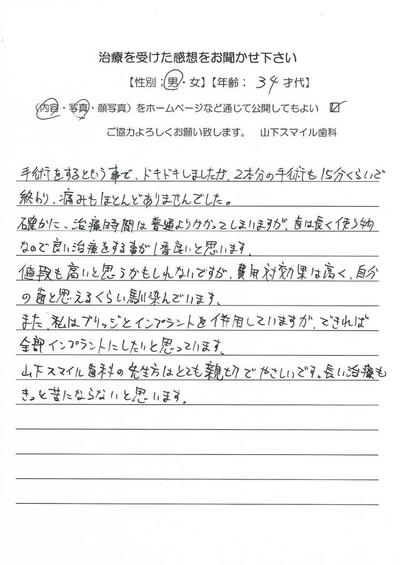 治療を受けた感想をお聞かせ下さい
【性別：男・女】【年齢：34才代】
（内容・写真・顔写真）をホームページなど通じて公開してもよい ☑
ご協力よろしくお願い致します。 山下スマイル歯科
手術をするという事で、ドキドキしましたが、2本分の手術も15分くらいで
終わり、痛みもほとんどありませんでした。
確かに、治療時間は普通よりかかってしまいますが、歯は長く使う物
なので良い治療をする事が1番良いと思います。
値段も高いと思うかもしれないですが、費用対効果は高く、自分
の歯と思えるくらい馴染んでいます。
また、私はブリッジとインプラントを併用していますが、できれば
全部インプラントにしたいと思っています。
山下スマイル歯科の先生方はとても親切でやさしいです。長い治療も
きっと苦にならないと思います。